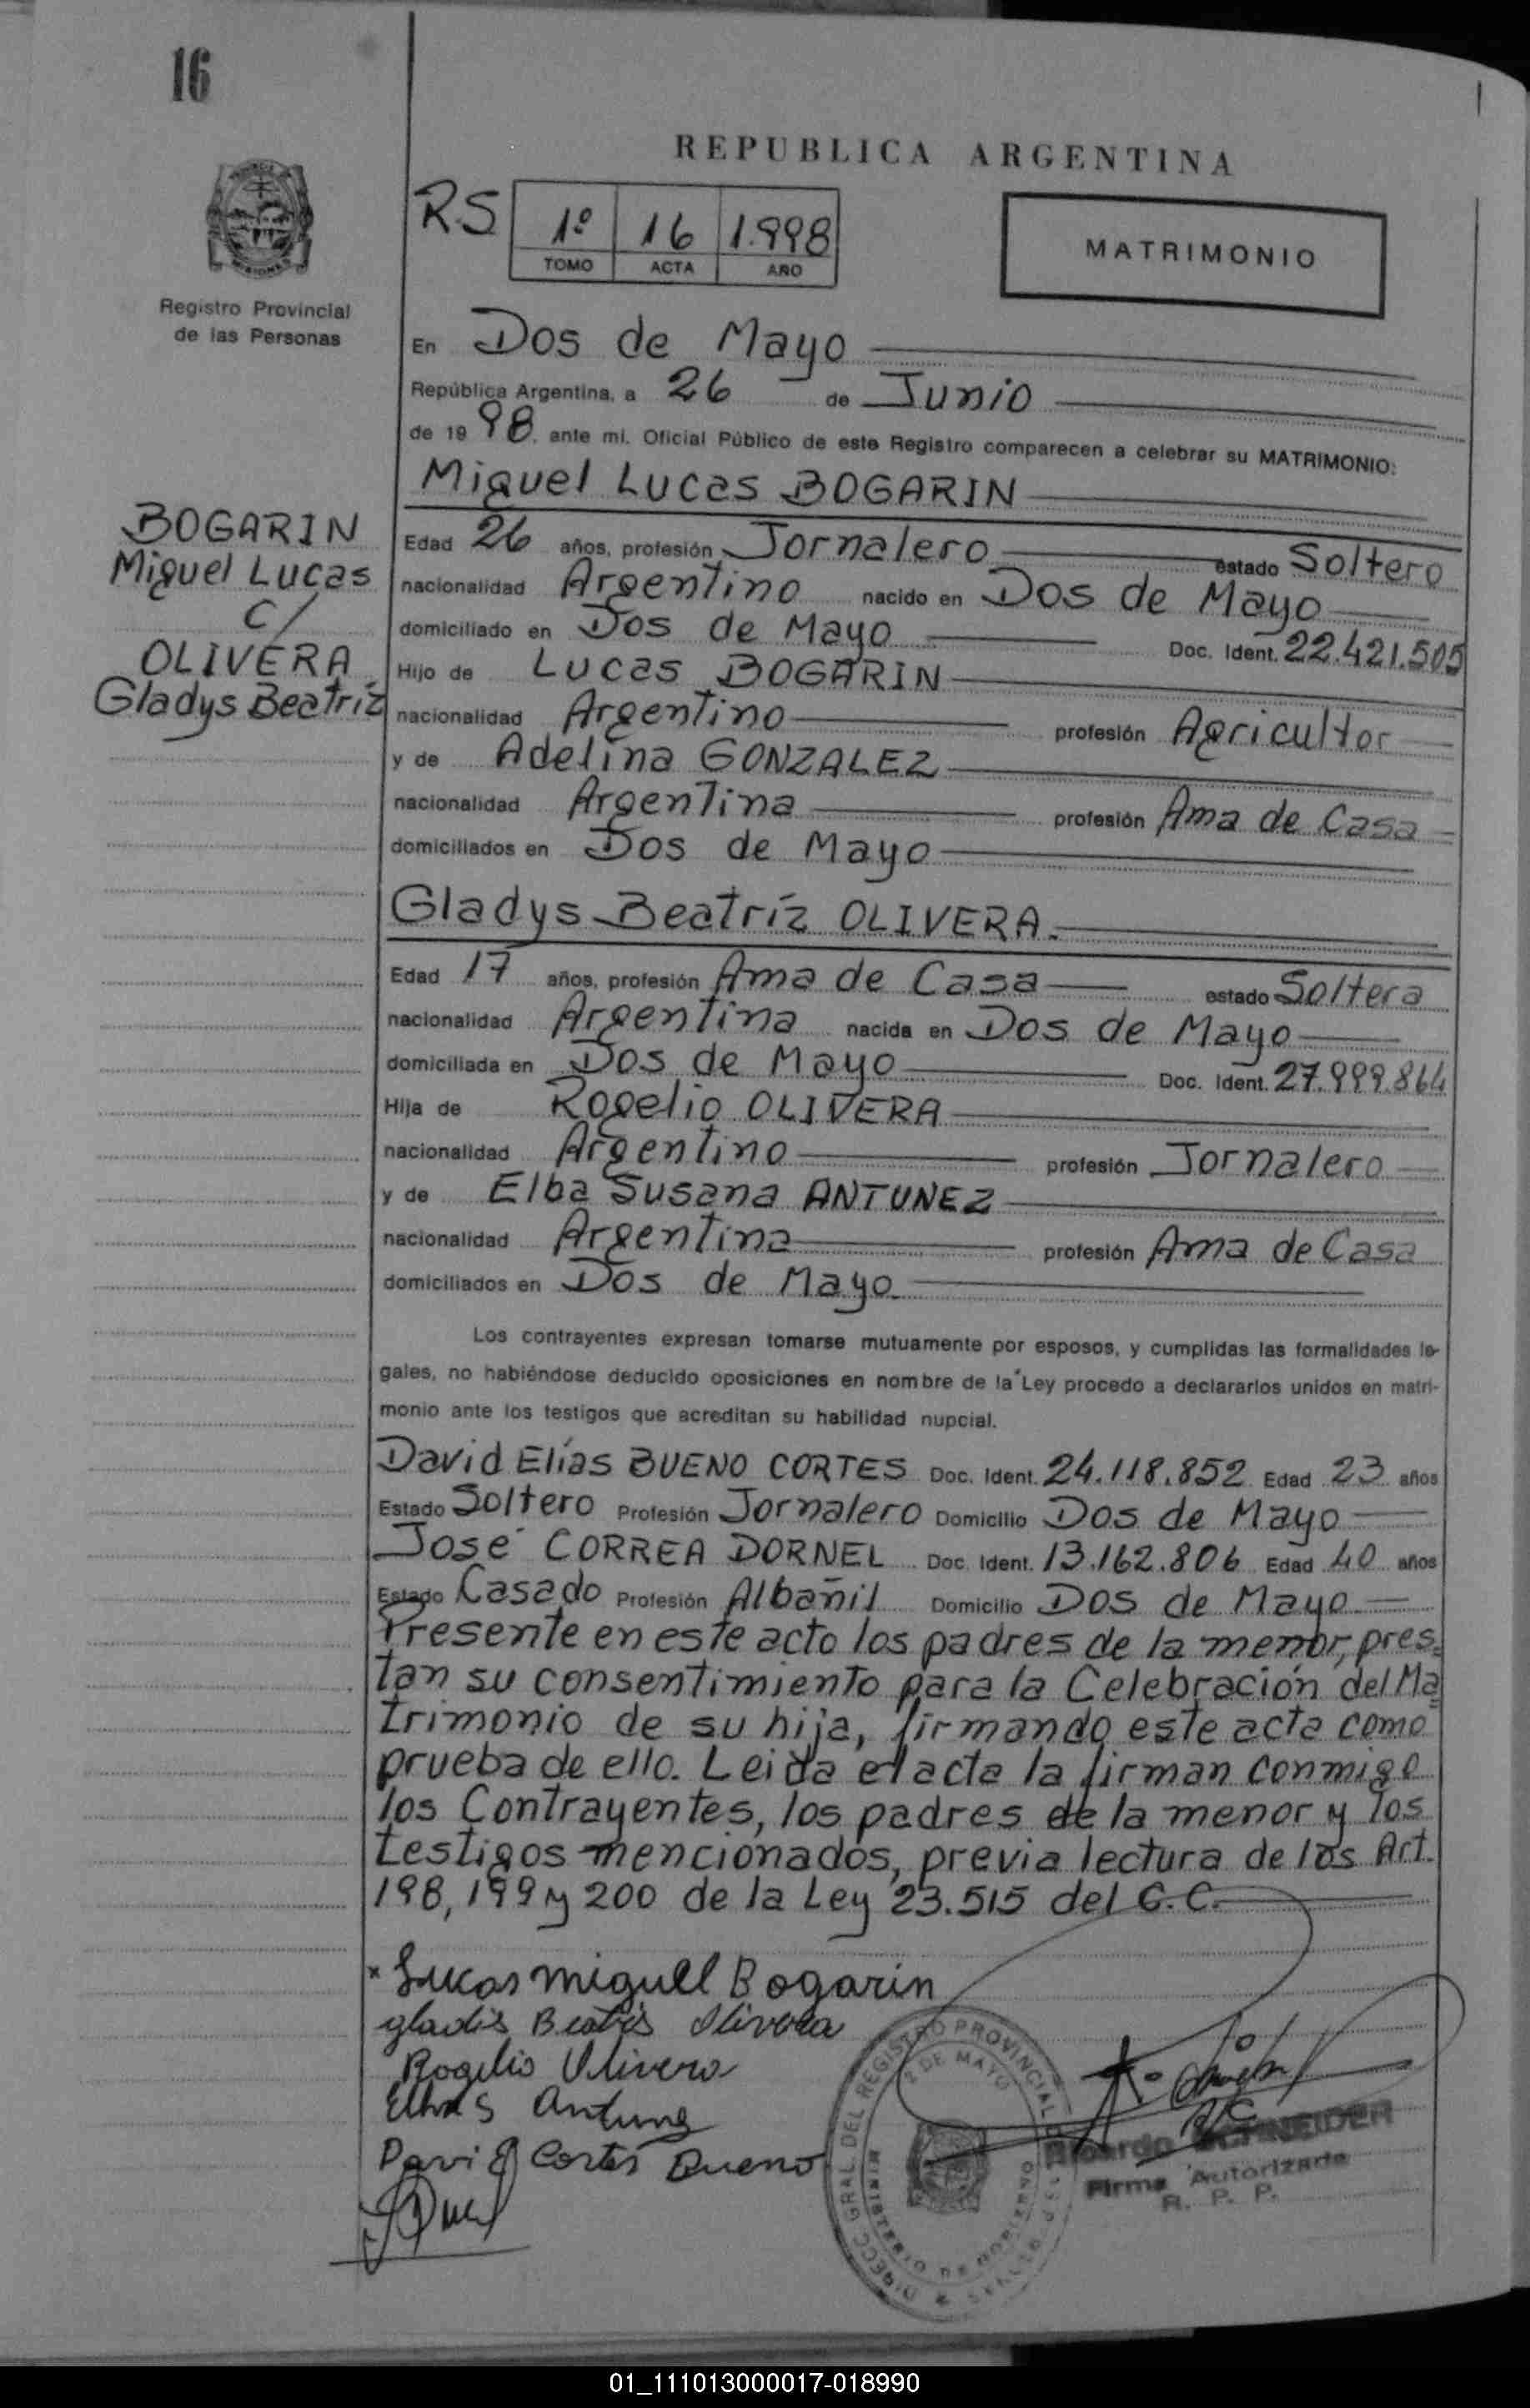 16
REPUBLICA ARGENTINA
RS 1º 16 1.998
TOMO ACTA AÑO
MATRIMONIO
Registro Provincial
de las Personas
En Dos de Mayo
República Argentina, a 26 de Junio
de 19 98, ante mi, Oficial Público de este Registro comparecen a celebrar su MATRIMONIO:
Miguel Lucas BOGARIN
BOGARIN
Miguel Lucas
C/
OLIVERA
Gladys Beatríz
Edad 26 años, profesión Jornalero estado Soltero
nacionalidad Argentino nacido en Dos de Mayo
domiciliado en Dos de Mayo Doc. Ident. 22.421.505
Hijo de Lucas BOGARIN
nacionalidad Argentino profesión Agricultor
y de Adelina GONZALEZ
nacionalidad Argentina profesión Ama de Casa
domiciliados en Dos de Mayo
Gladys Beatríz OLIVERA.
Edad 17 años, profesión Ama de Casa estado Soltera
nacionalidad Argentina nacida en Dos de Mayo
domiciliada en Dos de Mayo Doc. Ident. 27.999.864
Hija de Rogelio OLIVERA
nacionalidad Argentino profesión Jornalero
y de Elba Susana ANTUNEZ
nacionalidad Argentina profesión Ama de Casa
domiciliados en Dos de Mayo.
Los contrayentes expresan tomarse mutuamente por esposos, y cumplidas las formalidades le-
gales, no habiéndose deducido oposiciones en nombre de la Ley procedo a declararlos unidos en matri-
monio ante los testigos que acreditan su habilidad nupcial.
David Elías BUENO CORTES Doc. Ident. 24.118.852 Edad 23 años
Estado Soltero Profesión Jornalero Domicilio Dos de Mayo
José CORREA DORNEL Doc. Ident. 13.162.806 Edad 40 años
Estado Casado Profesión Albañil Domicilio Dos de Mayo
Presente en este acto los padres de la menor, pres=
tan su consentimiento para la Celebración del Ma=
trimonio de su hija, firmando este acta como
prueba de ello. Leida el acta la firman conmigo
los Contrayentes, los padres de la menor y los
testigos mencionados, previa lectura de los Art.
198, 199 y 200 de la Ley 23.515 del C.C.
x Lucas miguel Bogarin
gladis Beatris Olivera
Rogelio Olivera
Elba S Antunez
David Cortes Bueno
DIRECC. GRAL. DEL REGISTRO PROVINCIAL
2 DE MAYO
MINISTERIO DE GOBIERNO
Ricardo SCHNEIDER
Firma Autorizada
R. P. P.
01_111013000017-018990